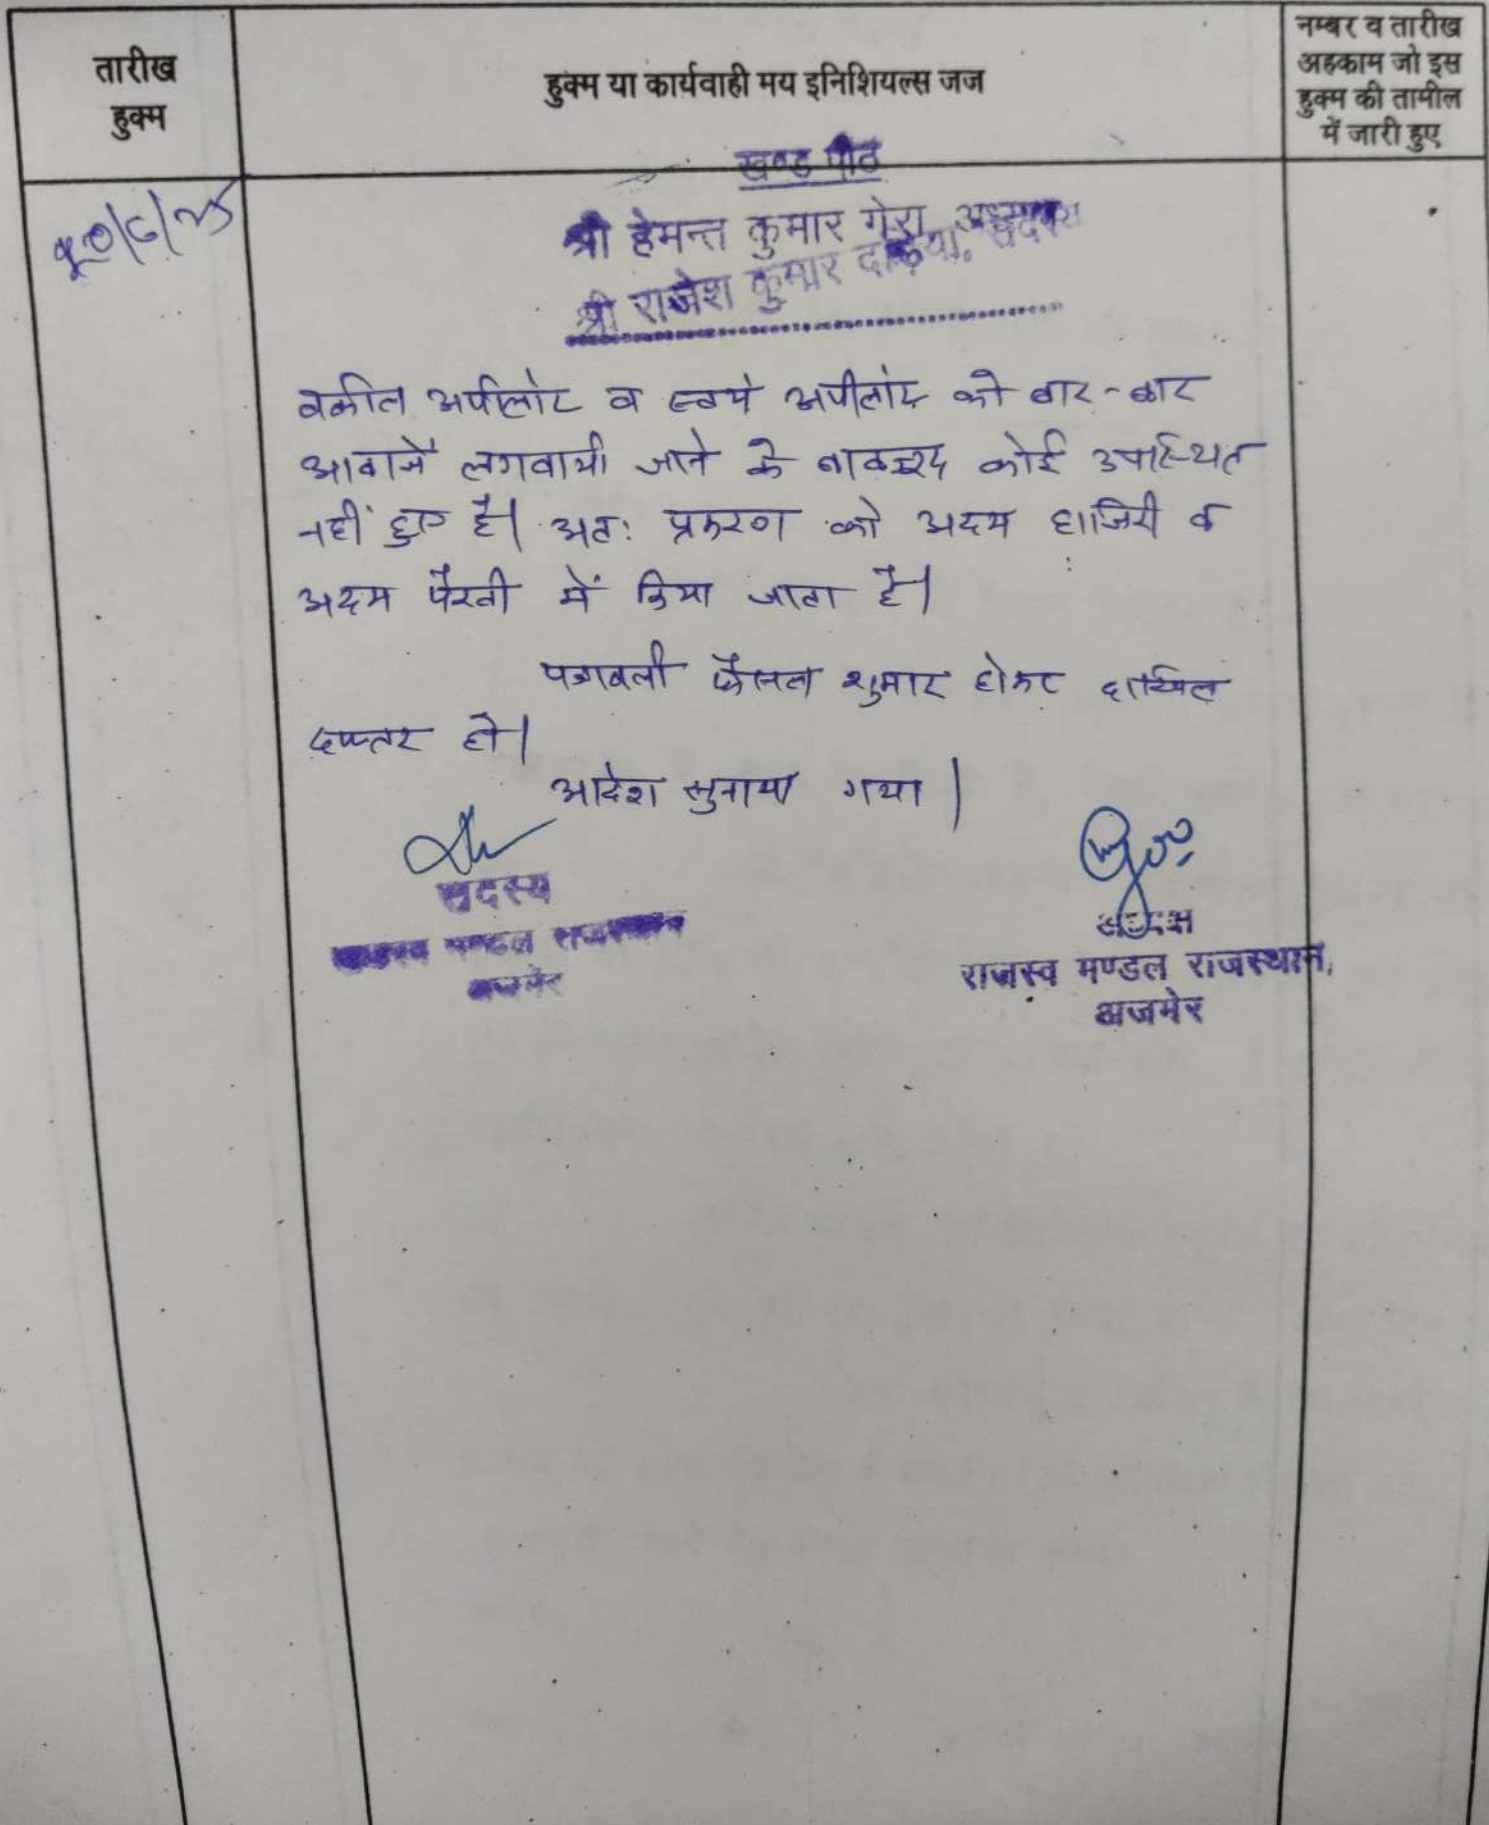 तारीख
हुक्म
हुक्म या कार्यवाही मय इनिशियल्स जज
नम्बर व तारीख
अहकाम जो इस
हुक्म की तामील
में जारी हुए
खण्ड पीठ
श्री हेमन्त कुमार गेरा, अध्यक्ष
श्री राजेश कुमार दड़िया, सदस्य
वकील अपीलांट व स्वयं अपीलांट को बार-बार
आवाजें लगवायी जाने के बावजूद कोई उपस्थित
नहीं हुए है। अतः प्रकरण को अदम हाजिरी व
अदम पैरवी में किया जाता है।
पत्रावली फैसल शुमार होकर दाखिल
दफ्तर हो।
आदेश सुनाया गया।
सदस्य
राजस्व मण्डल राजस्थान
अजमेर
अध्यक्ष
राजस्व मण्डल राजस्थान,
अजमेर